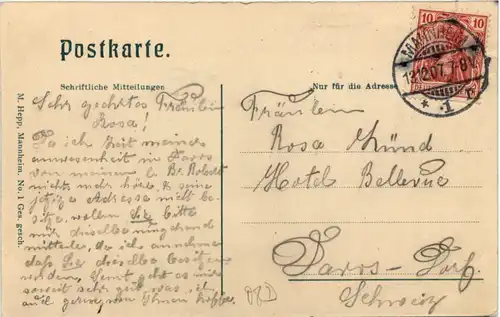 Postkarte.
Schriftliche Mitteilungen
Nur für die Adresse
M. Hepp, Mannheim. No. 1 Ges. gesch.
10 10
MANNHEIM
13.12.07. 7-8V.
* 1
Sehr geehrtes Fräulein
Rosa!
Da ich seit meiner
anwesenheit in Davos
von meinem l. Br. Robert
nichts mehr höre, & seine
jetzige Adresse nicht be-
sitze, wollen Sie bitte
mir dieselbe
mitteilen, da ich annehme
daß Sie dieselbe besitzen
werden. Sonst geht es mir
soweit sehr gut, was ich
auch gerne von Ihnen hoffe.
Fräulein
Rosa Kündig
Hotel Bellevue
Davos-Dorf
Schweiz